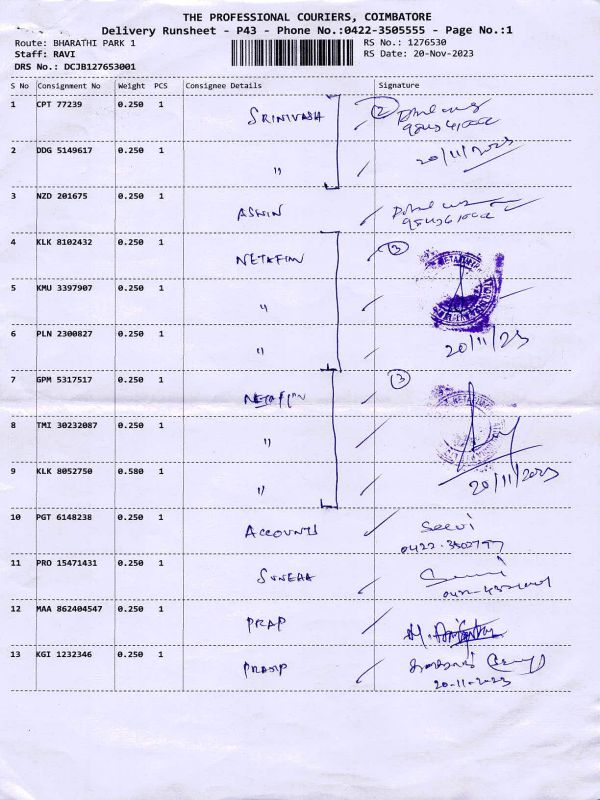 THE PROFESSIONAL COURIERS, COIMBATORE
Delivery Runsheet - P43 - Phone No.:0422-3505555 - Page No.:1
Route: BHARATHI PARK 1 RS No.: 1276530
Staff: RAVI RS Date: 20-Nov-2023
DRS No.: DCJB127653001
S No Consignment No Weight PCS Consignee Details Signature
1 CPT 77239 0.250 1 SRINIVASA 2
2 DDG 5149617 0.250 1 " 20/11/2023
3 NZD 201675 0.250 1 ASWIN
4 KLK 8102432 0.250 1 NETAFIM 3
5 KMU 3397907 0.250 1 "
6 PLN 2300827 0.250 1 " 20/11/23
7 GPM 5317517 0.250 1 NETAFIM 3
8 TMI 30232087 0.250 1 "
9 KLK 8052750 0.580 1 " 20/11/2023
10 PGT 6148238 0.250 1 ACCOUNTS Selvi
11 PRO 15471431 0.250 1
12 MAA 862404547 0.250 1 PRAP
13 KGI 1232346 0.250 1
20-11-2023